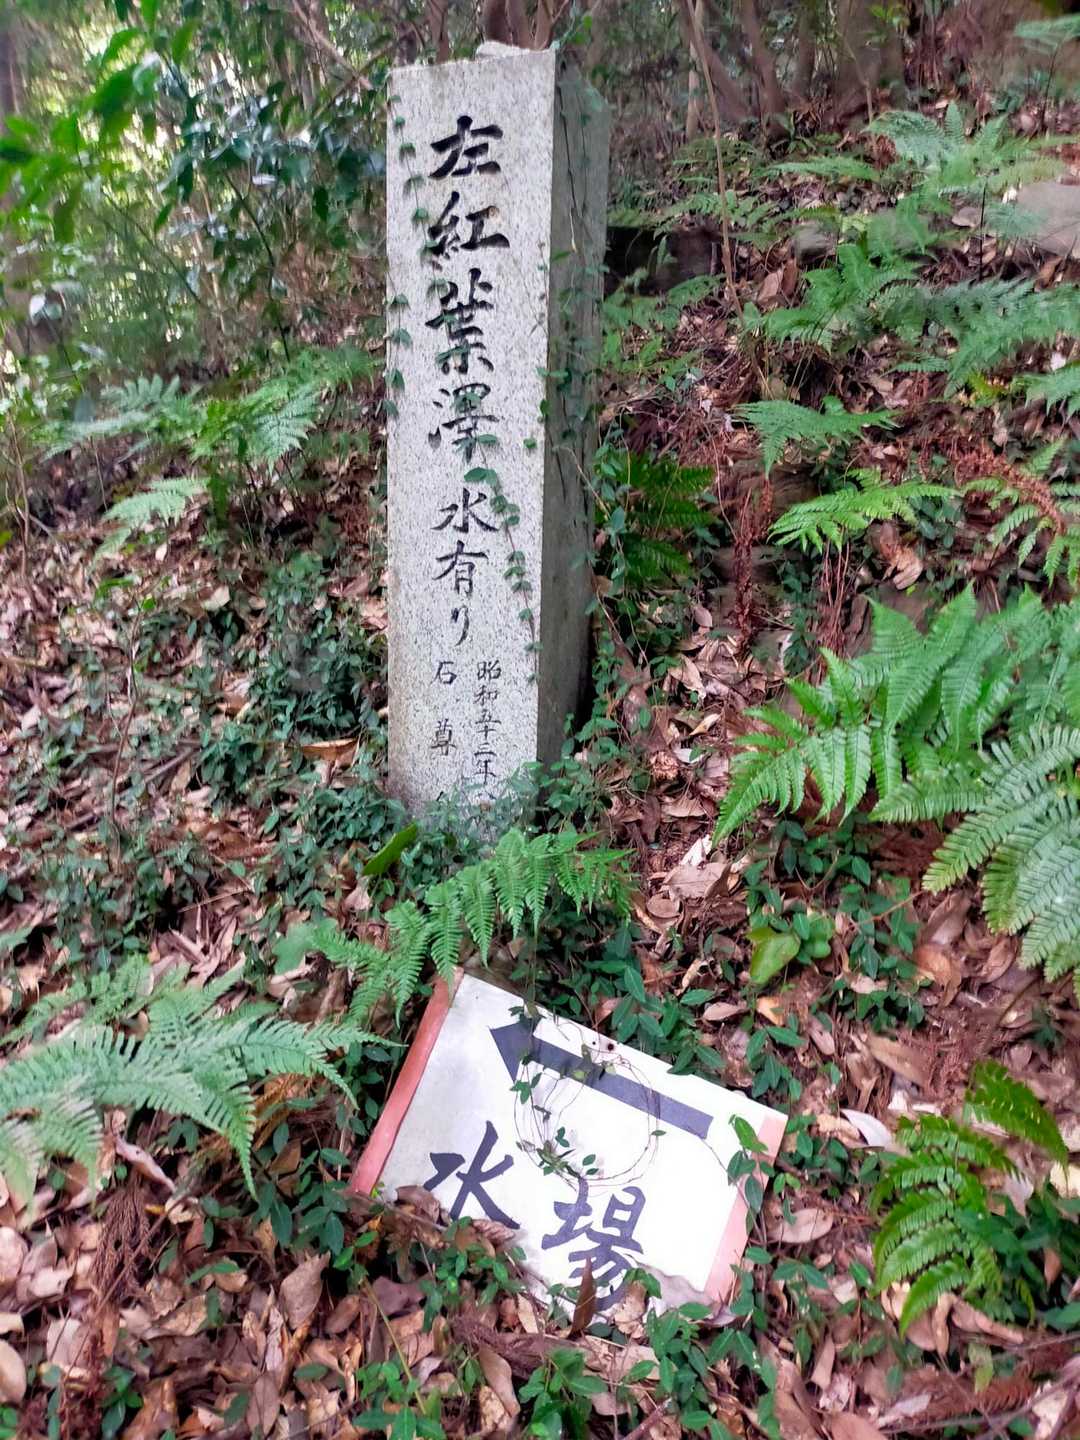 左紅葉澤水有リ
昭和五十二年
石尊
水場